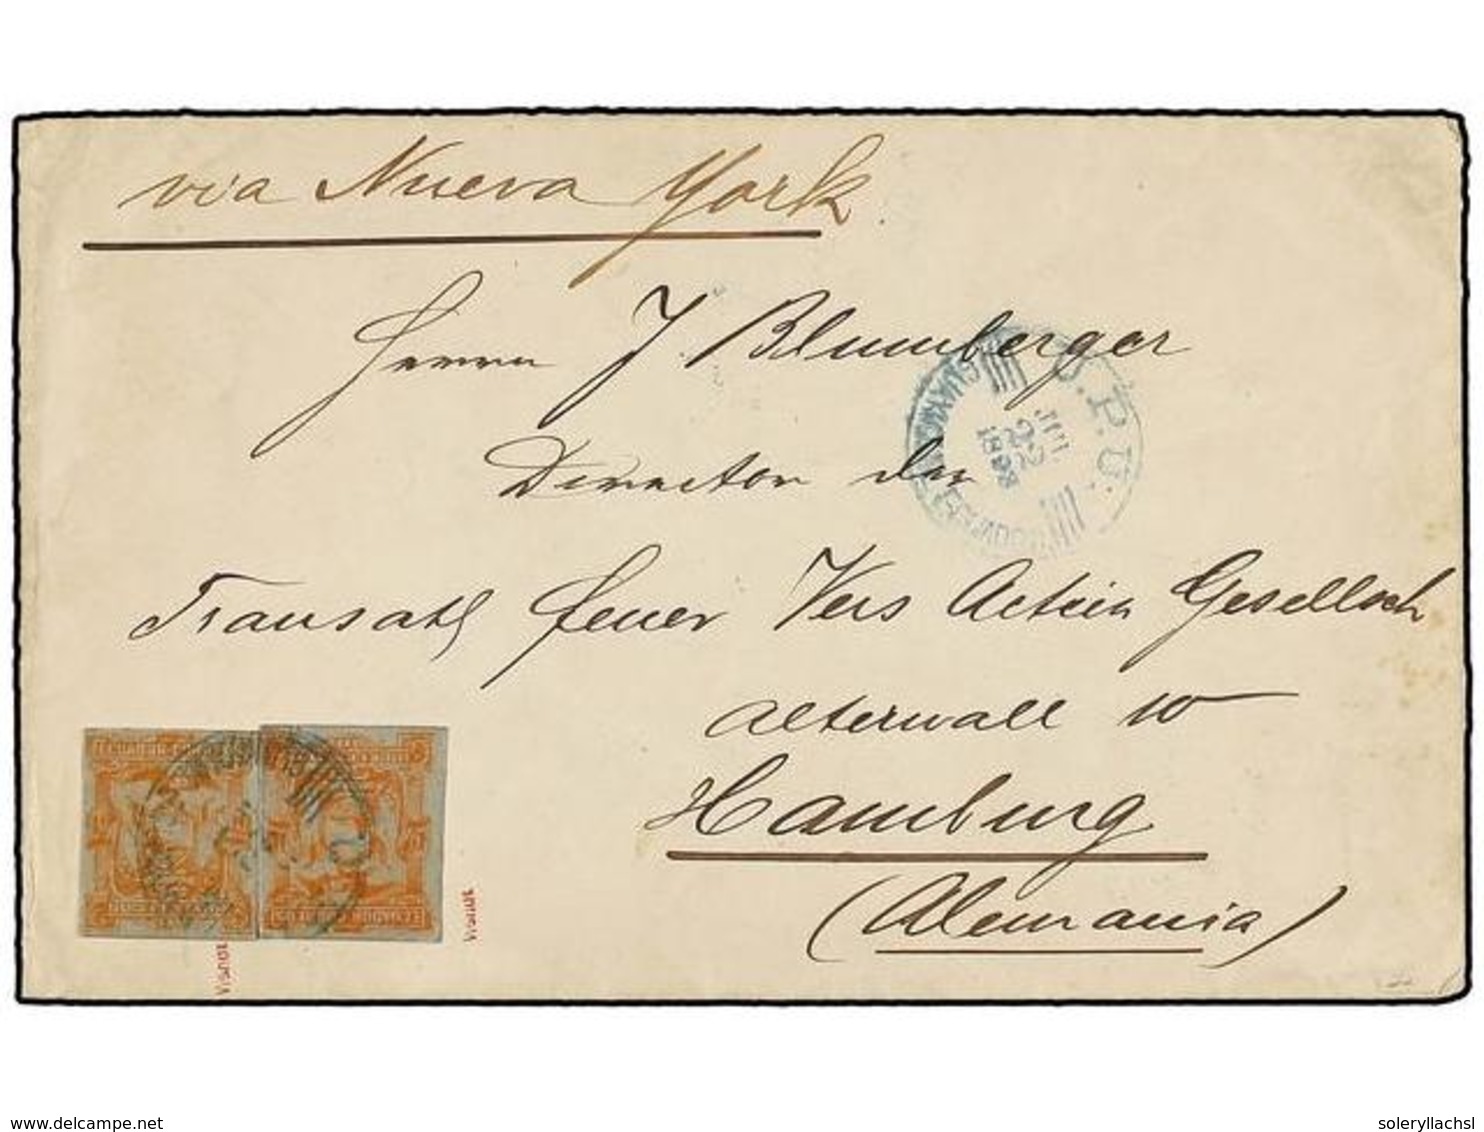 via Nueva York.
Herrn J. Blumberger
Director der
Transatl feuer Vers Actien Gesellsch
alterwall 10
Hamburg
(Alemania)
U.P.U.
JUL
22
ECUADOR
delcampe.net
soleryllachsl